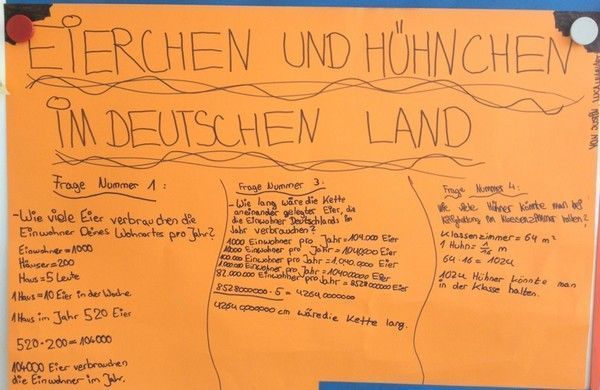 EIERCHEN UND HÜHNCHEN
IM DEUTSCHEN LAND
Frage Nummer 1:
- Wie viele Eier verbrauchen die
Einwohner Deines Wohnortes pro Jahr?
Einwohner = 1000
Häuser = 200
Haus = 5 Leute
1 Haus = 10 Eier in der Woche
1 Haus im Jahr 520 Eier
520 · 200 = 104000
104000 Eier verbrauchen
die Einwohner im Jahr.
Frage Nummer 3:
- Wie lang wäre die Kette
aneinander gelegter Eier, die
die Einwohner Deutschlands im
Jahr verbrauchen?
1000 Einwohner pro Jahr = 104.000 Eier
pro Jahr = 1040000 Eier
Einwohner pro Jahr = 1.040.0000 Eier
Einwohner pro Jahr = 104000000 Eier
82.000.000 Einwohner pro Jahr = 8528000000 Eier
8528000000 · 5 = 4264.0000000
4264.0000000 cm wäre die Kette lang.
Frage Nummer 4:
Wie viele Hühner könnte man bei
Käfighaltung im Klassenzimmer halten?
Klassenzimmer = 64 m²
1 Huhn = 1/16 m
64 · 16 = 1024
1024 Hühner könnte man
in der Klasse halten.
VON